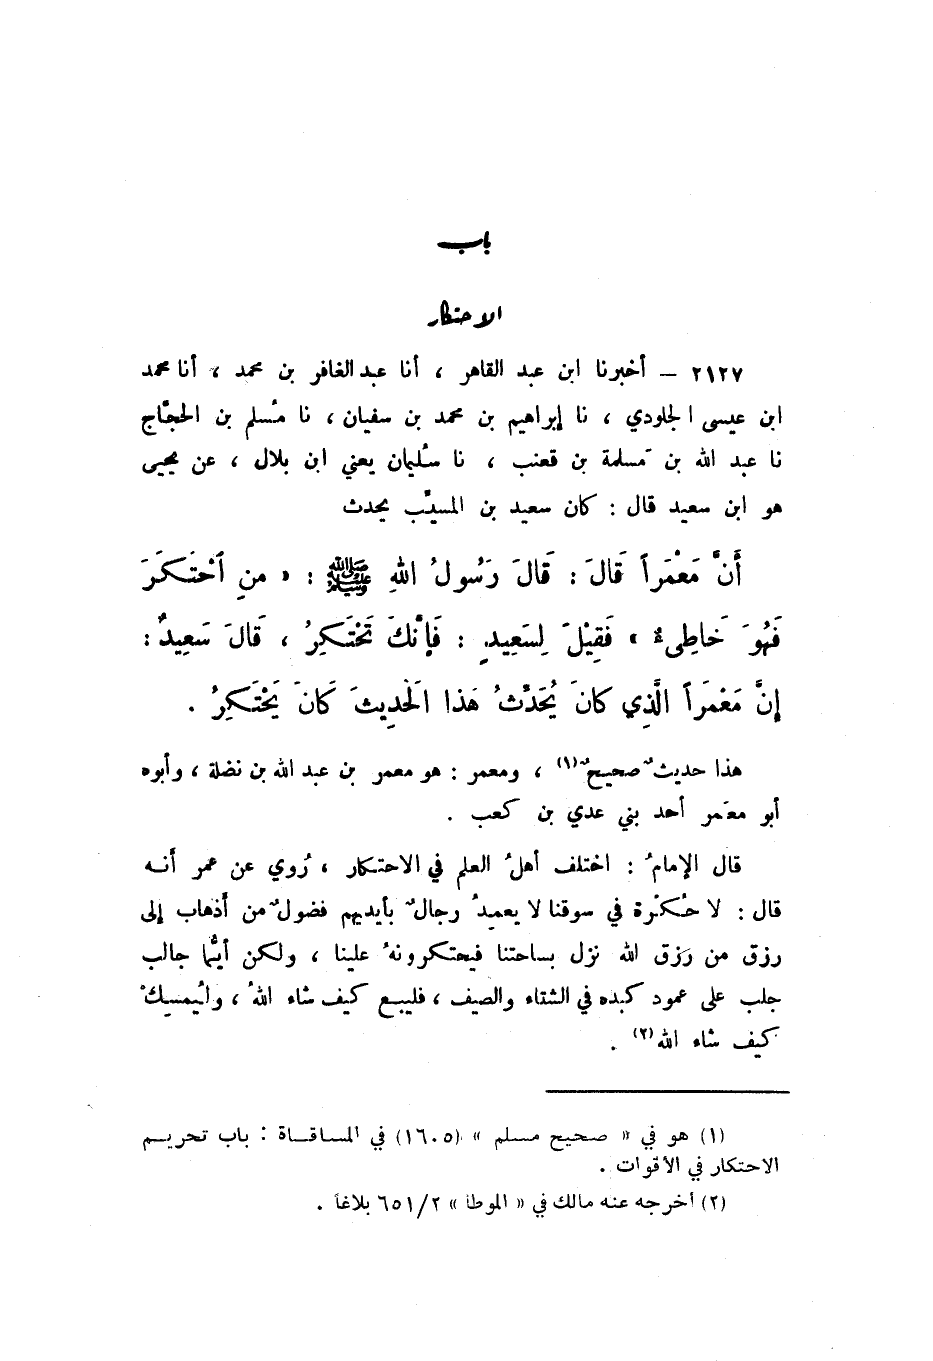 باب
الاحتكار
٢١٢٧ – أخبرنا ابن عبد القاهر ، أنا عبد الغافر بن محمد ، أنا محمد
ابن عيسى الجلودي ، نا إبراهيم بن محمد بن سفيان ، نا مُسلم بن الحجَّاج
نا عبد الله بن مَسلمة بن قعنب ، نا سُليمان يعني ابن بلال ، عن يحيى
هو ابن سعيد قال : كان سعيد بن المسيَّب يحدث
أَنَّ مَعْمَراً قَالَ : قَالَ رَسُولُ اللهِ ﷺ : « مَنِ ٱحْتَكَرَ
فَهُوَ خَاطِىءٌ » فَقِيْلَ لِسَعِيدٍ : فَإِنَّكَ تَحْتَكِرُ ، قَالَ سَعِيدٌ :
إِنَّ مَعْمَراً الَّذِي كانَ يُحَدِّثُ هَذا الَحْدِيثَ كَانَ يَحْتَكِرُ .
هذا حديثٌ صحيحٌ(١) ، ومعمر : هو معمر بن عبد الله بن نضلة ، وأبوه
أبو معمَر أحد بني عدي بن كعب .
قال الإمامُ : اختلف أهلُ العلم في الاحتكار ، رُوي عن عمر أنه
قال : لا حُكْرة في سوقنا لا يعمِدُ رجالٌ بأيديهم فضولٌ من أذهاب إلى
رزق من رَزق الله نزل بساحتنا فيحتكرونهُ علينا ، ولكن أيُّما جالب
جلب على عمود كبده في الشتاء والصيف ، فليبع كيف شاء اللهُ ، وليُمسِكْ
كيف شاء الله(٢) .
(١) هو في « صحيح مسلم » (١٦٠٥) في المساقاة : باب تحريم
الاحتكار في الأقوات .
(٢) أخرجه عنه مالك في « الموطأ » ٦٥١/٢ بلاغاً .